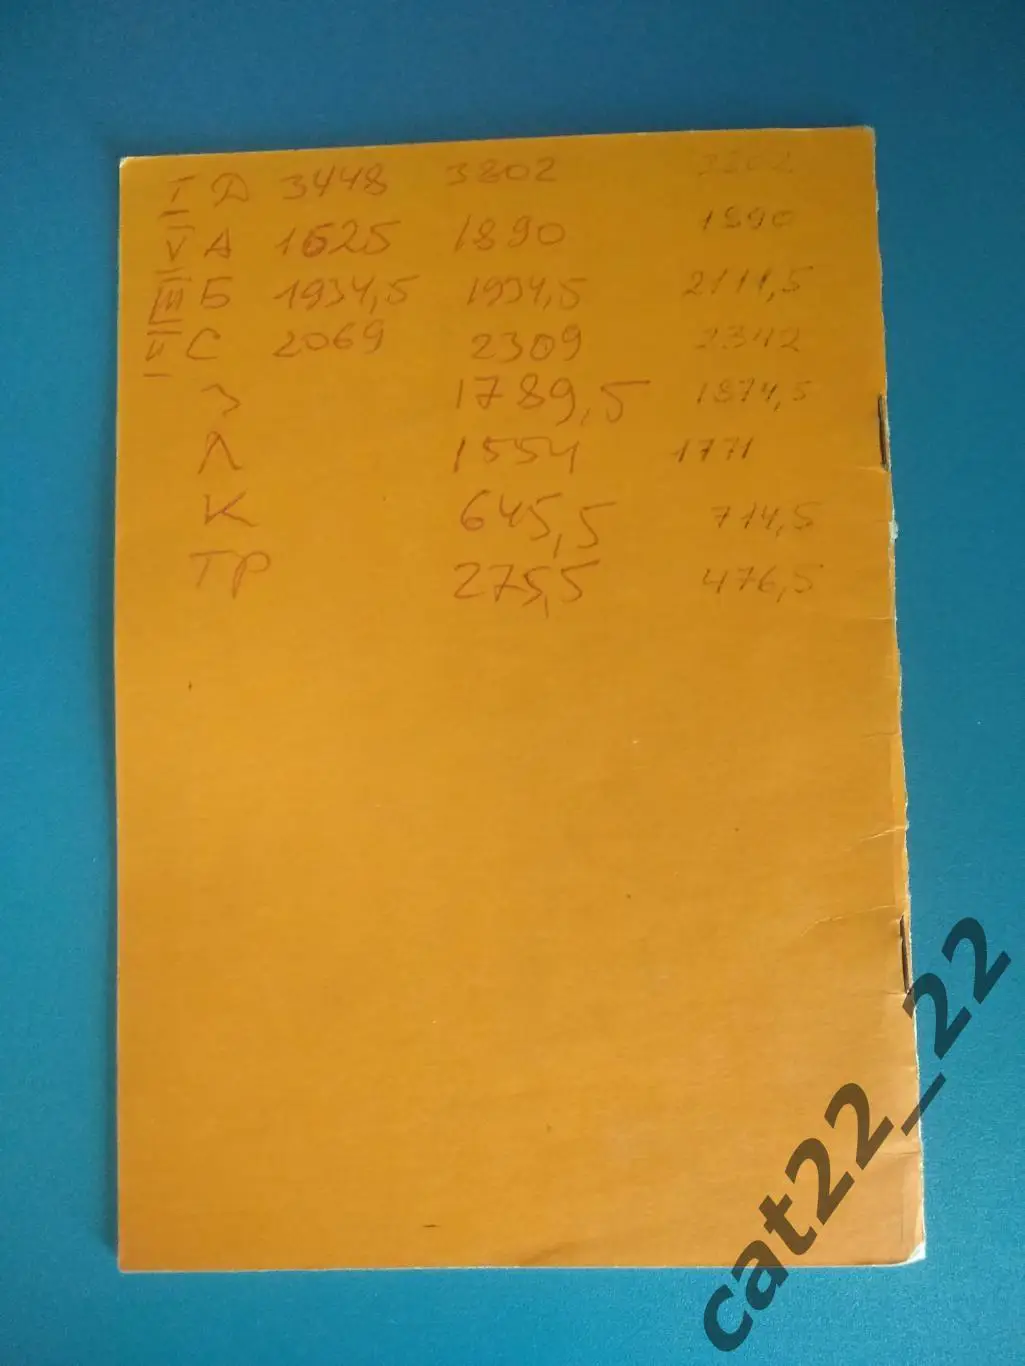 I Д 3448 3802 3802
V А 1625 1890 1890
III Б 1934,5 1934,5 2111,5
II С 2069 2309 2342
З 1789,5 1874,5
Л 1554 1771
К 645,5 714,5
ТР 275,5 476,5
cat22_22